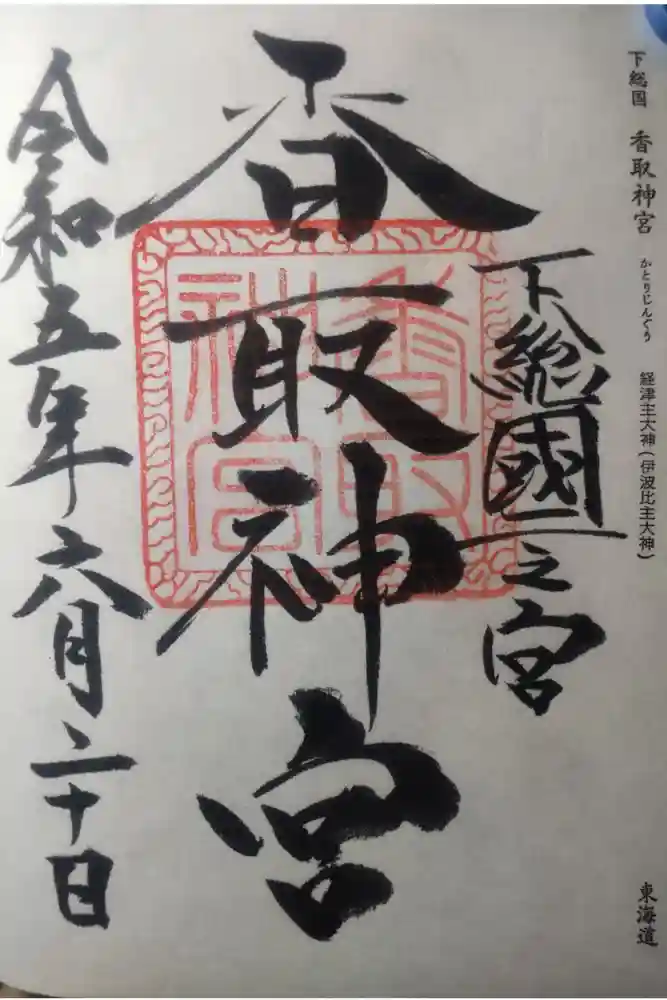 下総国 香取神宮 かとりじんぐう 経津主大神(伊波比主大神) 東海道
下総國一之宮
香取神宮
香取神宮
令和五年六月二十日